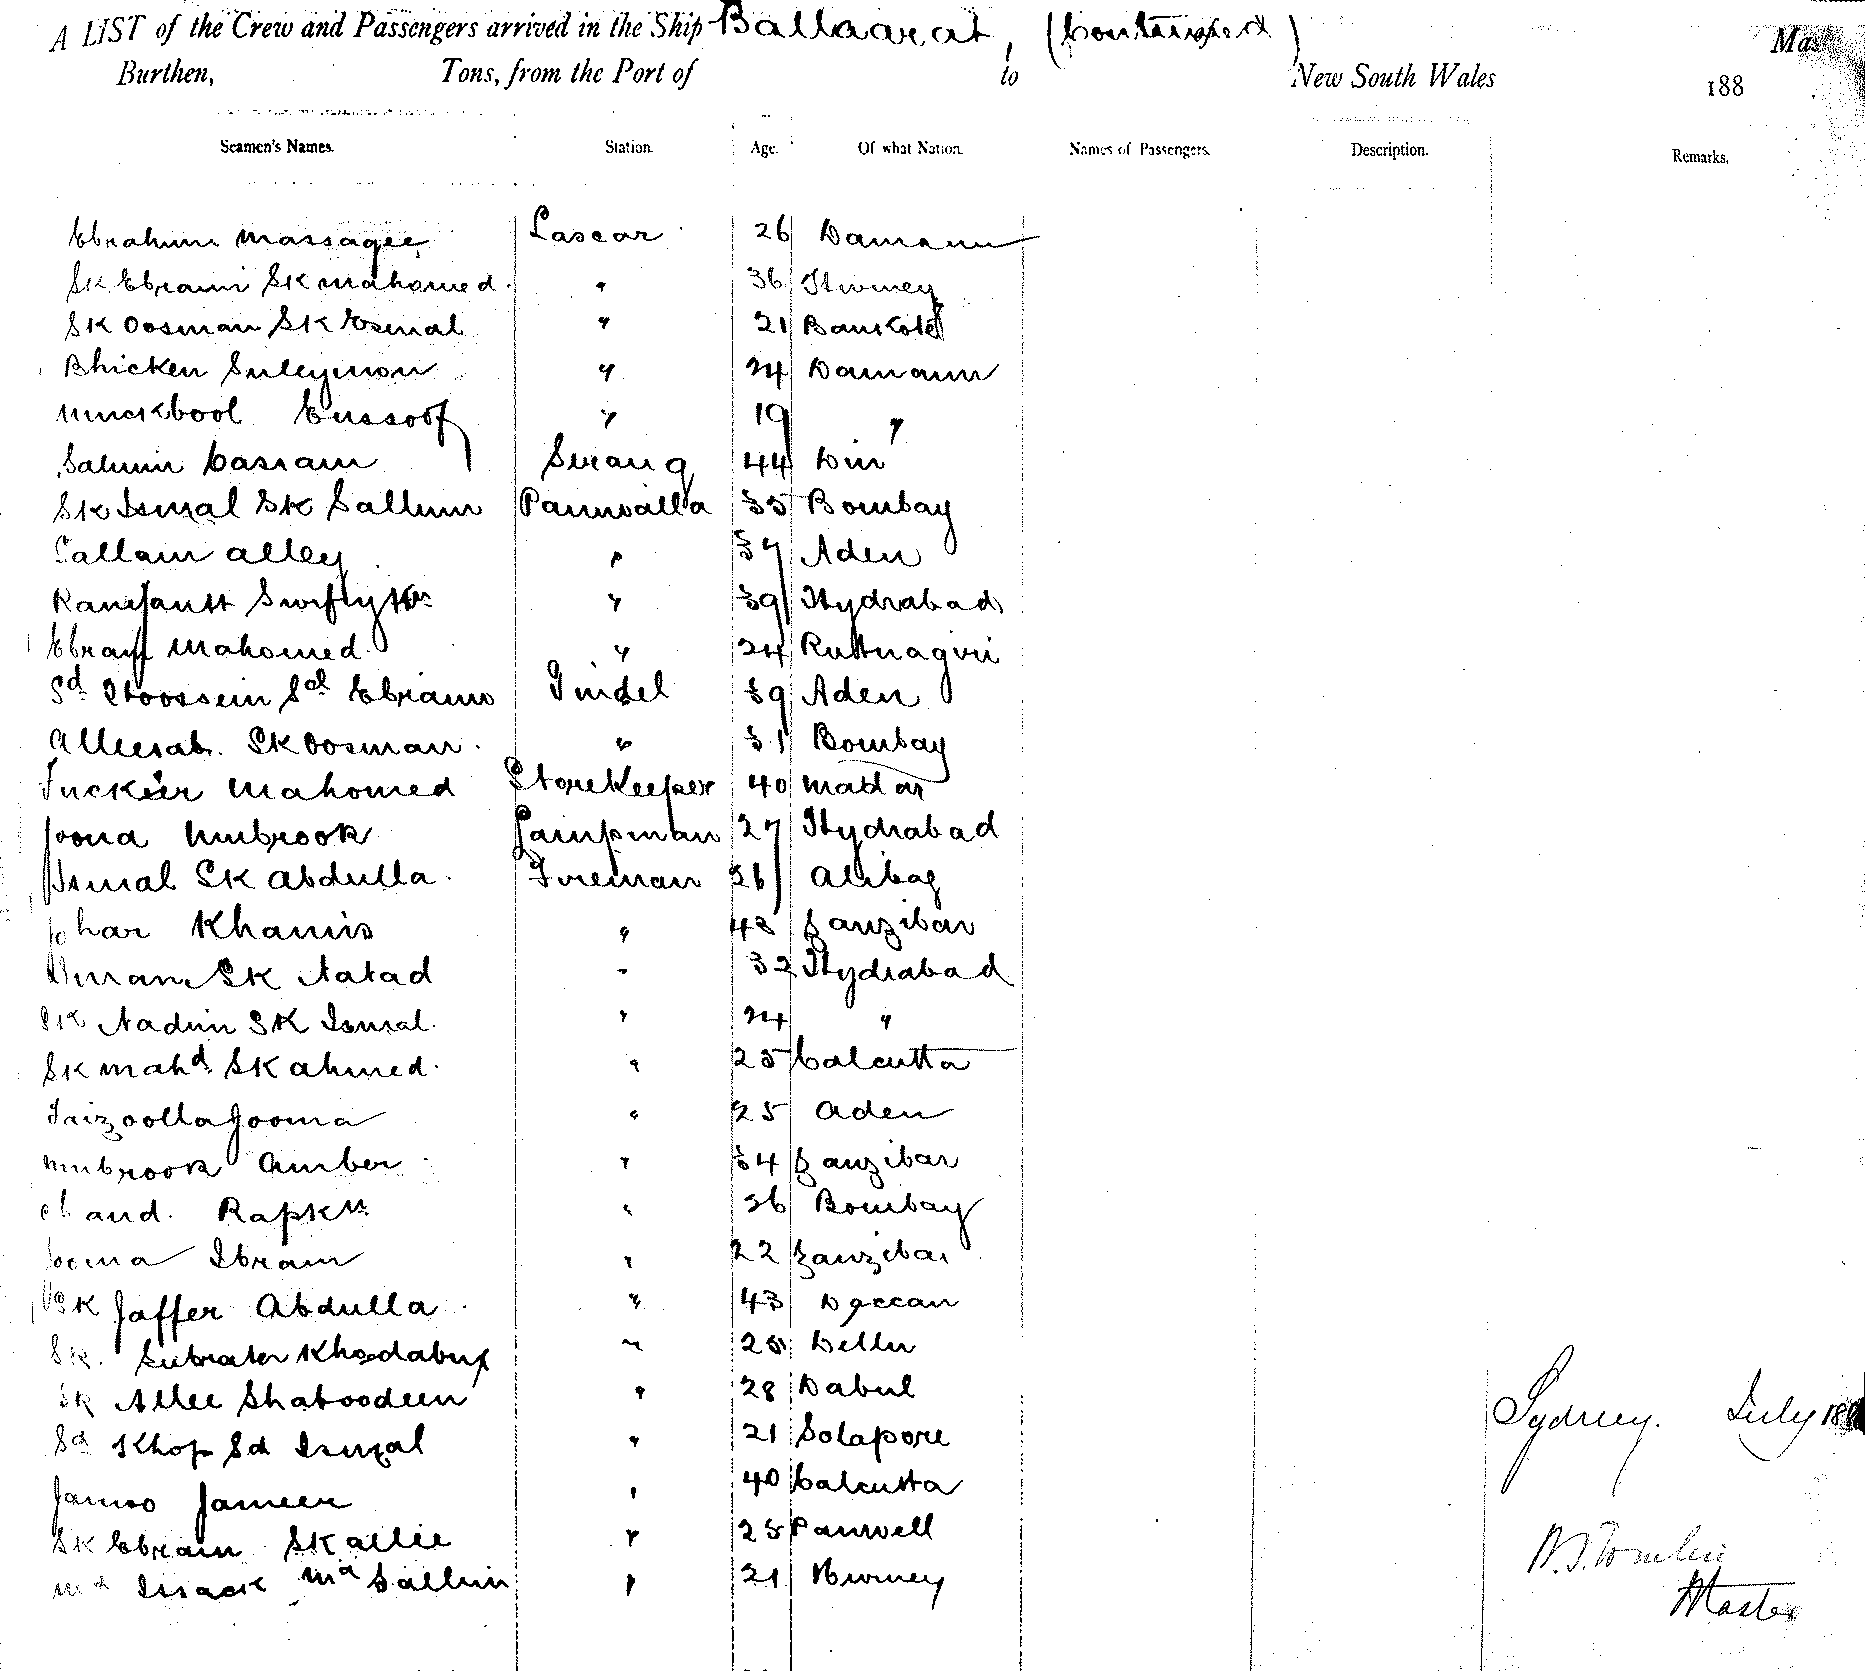 A LIST of the Crew and Passengers arrived in the Ship Ballaarat, (Continued)
Burthen, Tons, from the Port of to New South Wales 188
Seamen's Names. Station. Age. Of what Nation. Names of Passengers. Description. Remarks.
Ebrahim Massagee Lascar 26 Damaun
Sk Ebraim Sk Mahomed " 36 Hurney
Sk Oosman Sk Esmal " 21 Bankote
Bhicken Suleymon " 24 Damaun
Muckbool Eussoof " 19 "
Salium Cassam Serang 44 Diu
Sk Ismal Sk Sallum Pauniwalla 35 Bombay
Callam Alley " 37 Aden
" 39 Hydrabad
Ebram Mahomed " 24 Ruttnagiri
Sd Hoossein Sd Ebraim Tindel 39 Aden
Alleesab Sk Oosman " 31 Bombay
Tuckeer Mahomed Storekeeper 40
Jooma Mubrook Lampman 27 Hydrabad
Ismal Sk Abdulla Fireman 36 Alibag
Johar Khamis " 43 Zanzibar
Sk " 32 Hydrabad
Sk Nadim Sk Ismal " 24 "
Sk Mahd Sk Ahmed " 25 Calcutta
Faizoolla Jooma " 25 Aden
Mubrook Amber " 34 Zanzibar
Chand " 36 Bombay
Jooma Ibram " 22 Zanzibar
Sk Jaffer Abdulla " 43 Deccan
Sk. Khodabux " 25 Delhi
Sk Allee Shaboodeen " 28 Dabul
Sd Sd Ismal " 21 Solapore
Jamoo Jameer " 40 Calcutta
Sk Ebraim Sk Allie " 25 Panwell
Md Issack Md Sallim " 21 Hurney
Sydney. July 188
Tomlin
Master